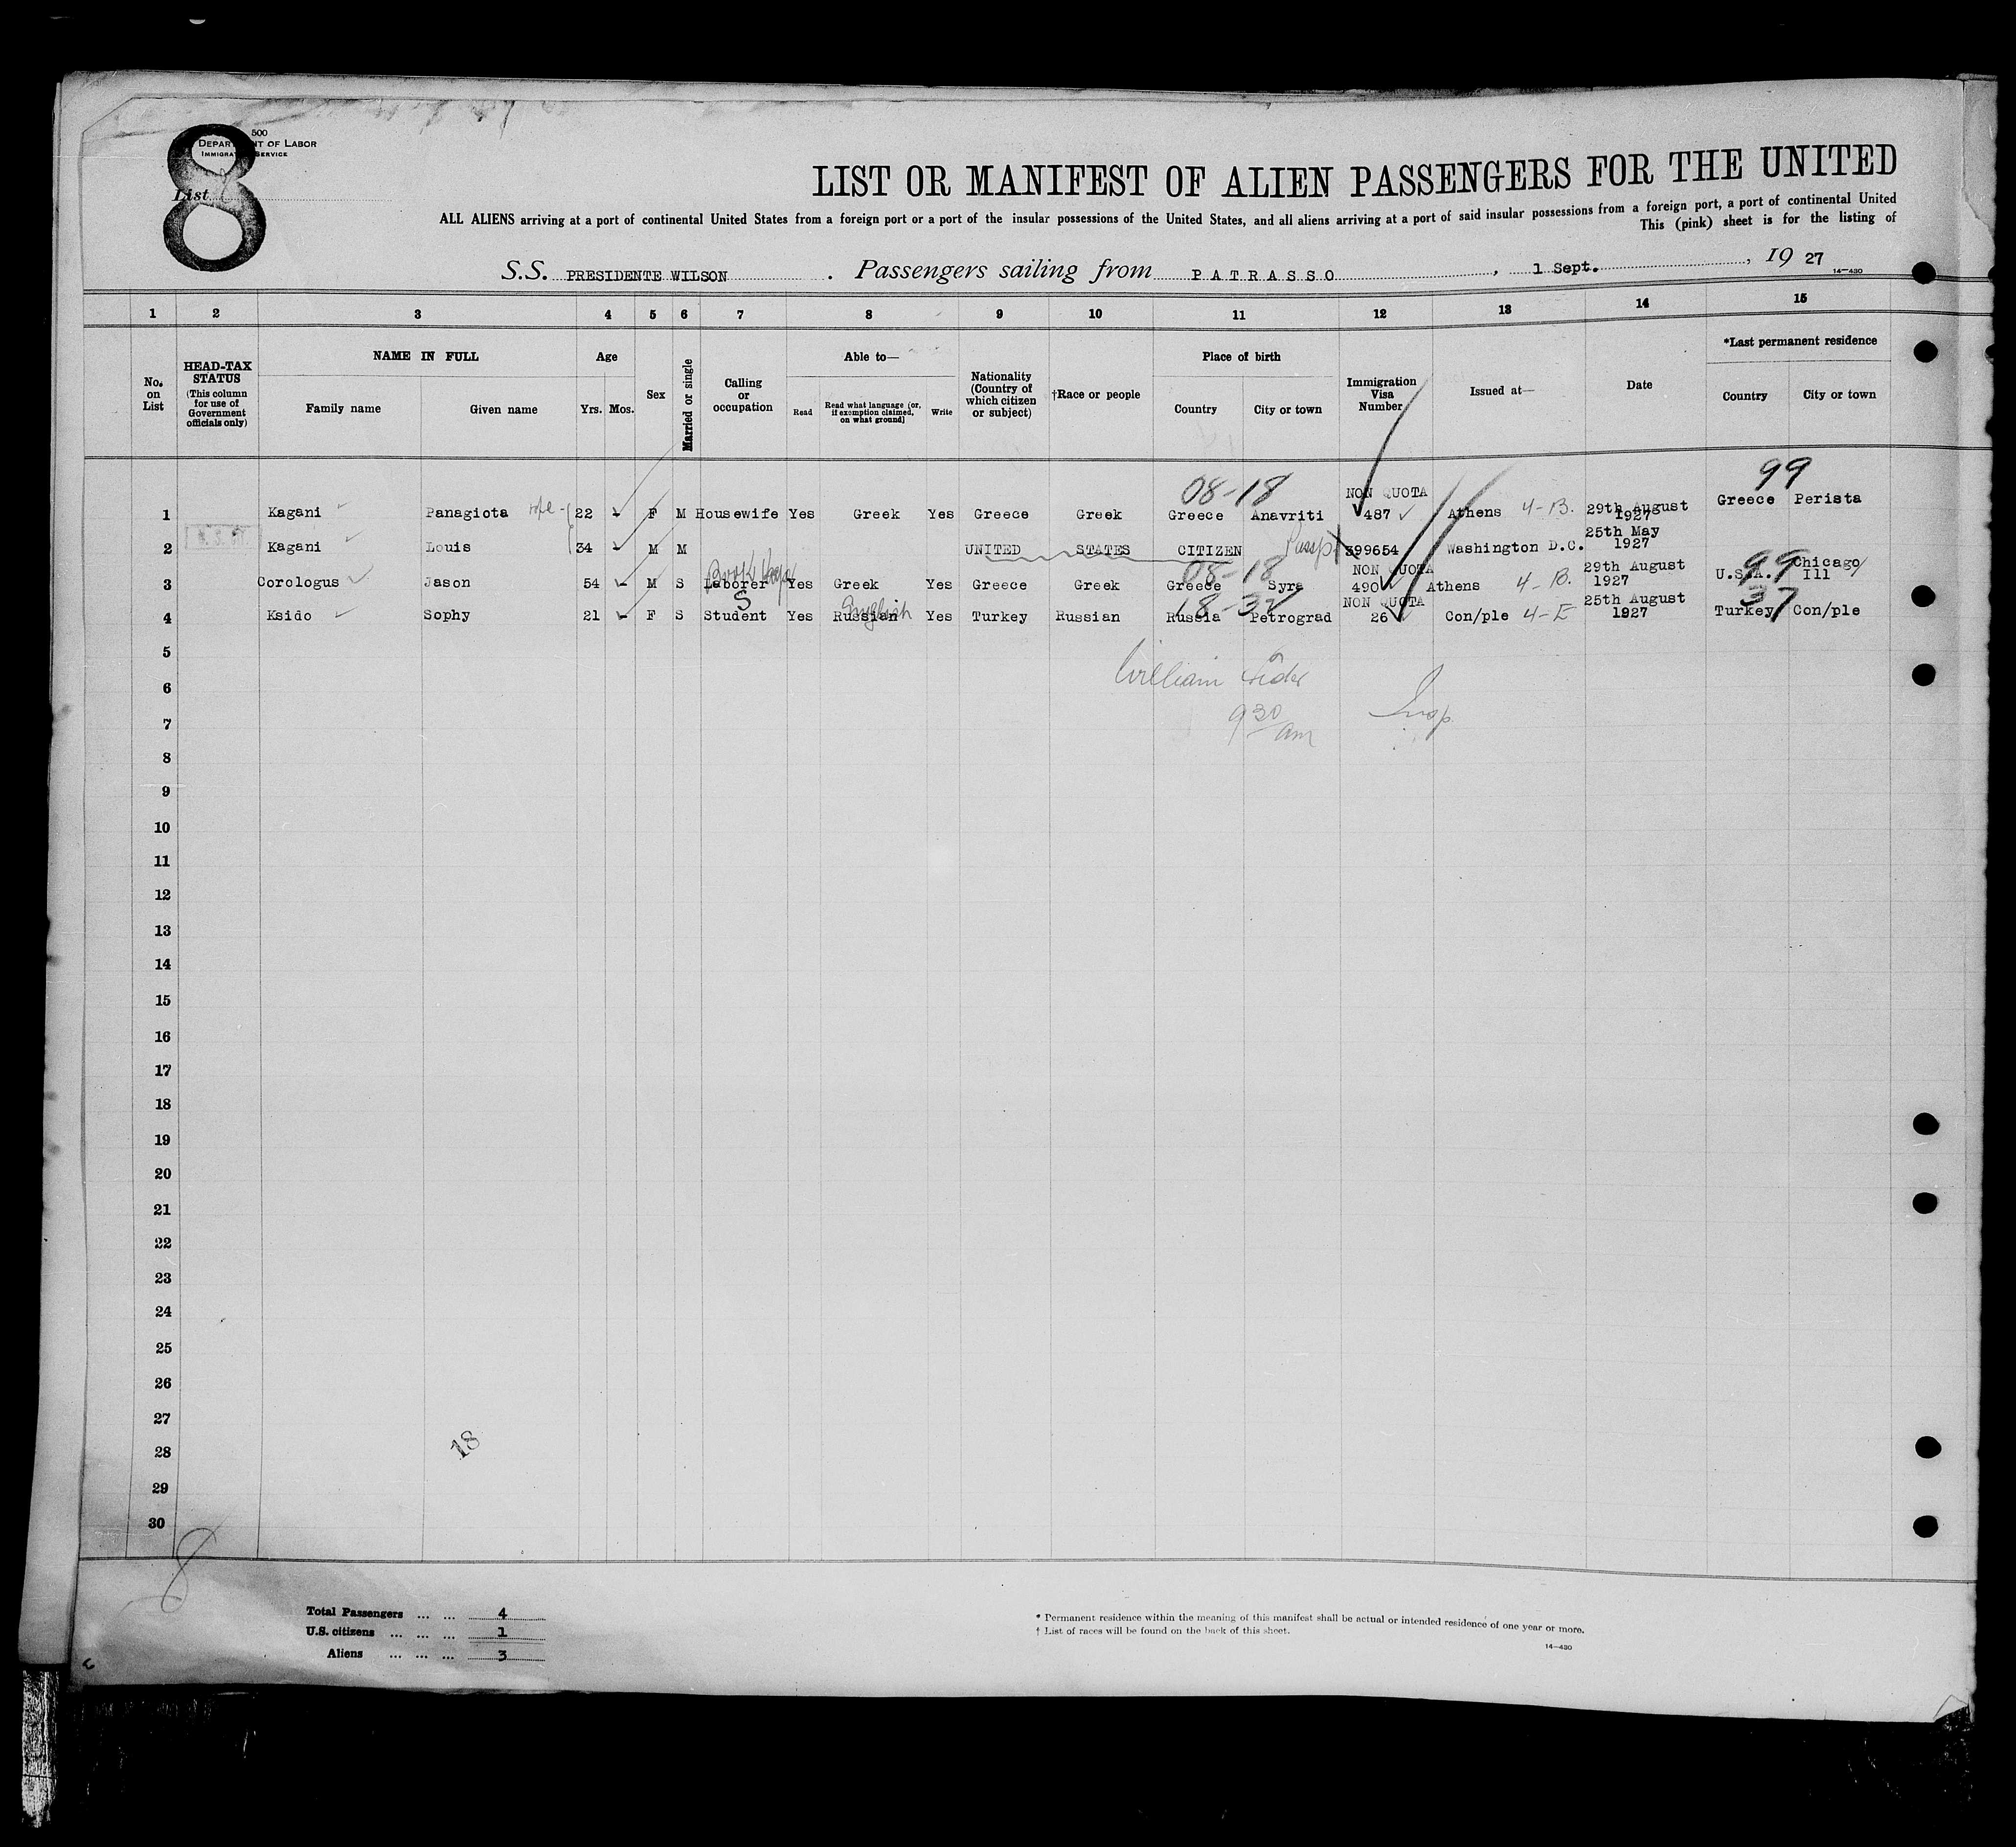 500
DEPARTMENT OF LABOR
IMMIGRATION SERVICE
8
List
LIST OR MANIFEST OF ALIEN PASSENGERS FOR THE UNITED
ALL ALIENS arriving at a port of continental United States from a foreign port or a port of the insular possessions of the United States, and all aliens arriving at a port of said insular possessions from a foreign port, a port of continental United
This (pink) sheet is for the listing of
S.S. PRESIDENTE WILSON . Passengers sailing from PATRASSO , 1 Sept. , 19 27
14—430
1 2 3 4 5 6 7 8 9 10 11 12 13 14 15
No. on List
HEAD-TAX STATUS (This column for use of Government officials only)
NAME IN FULL
Family name Given name
Age
Yrs. Mos.
Sex
Married or single
Calling or occupation
Able to—
Read Read what language (or, if exemption claimed, on what ground) Write
Nationality (Country of which citizen or subject)
†Race or people
Place of birth
Country City or town
Immigration Visa Number
Issued at—
Date
*Last permanent residence
Country City or town
08-18 NON QUOTA 99
1 Kagani Panagiota 22 - F M Housewife Yes Greek Yes Greece Greek Greece Anavriti 487 Athens 4-B. 29th August 1927 Greece Perista
2 Kagani Louis 34 - M M UNITED STATES CITIZEN Passpt 399654 Washington D.C. 25th May 1927
Book Keeper 08-18 NON QUOTA 99
3 Corologus Jason 54 - M S Laborer Yes Greek Yes Greece Greek Greece Syra 490 Athens 4-B. 29th August 1927 U.S.A. Chicago Ill
S English 18-32 NON QUOTA 37
4 Ksido Sophy 21 - F S Student Yes Russian Yes Turkey Russian Russia Petrograd 26 Con/ple 4-E 25th August 1927 Turkey Con/ple
5
6 William
7 9 30 am Insp.
8
9
10
11
12
13
14
15
16
17
18
19
20
21
22
23
24
25
26
27
28 18
29
30
8
Total Passengers ... ... 4
U.S. citizens ... ... ... 1
Aliens ... ... ... 3
* Permanent residence within the meaning of this manifest shall be actual or intended residence of one year or more.
† List of races will be found on the back of this sheet.
14—430